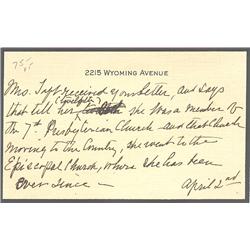 75
2215 WYOMING AVENUE
Mrs. Taft received your letter, and says
that till her twelfth she was a member of
the 7th Presbyterian Church and that Church
moving to the Country, she went to the
Episcopal Church, where she has been
ever since —
April 2nd